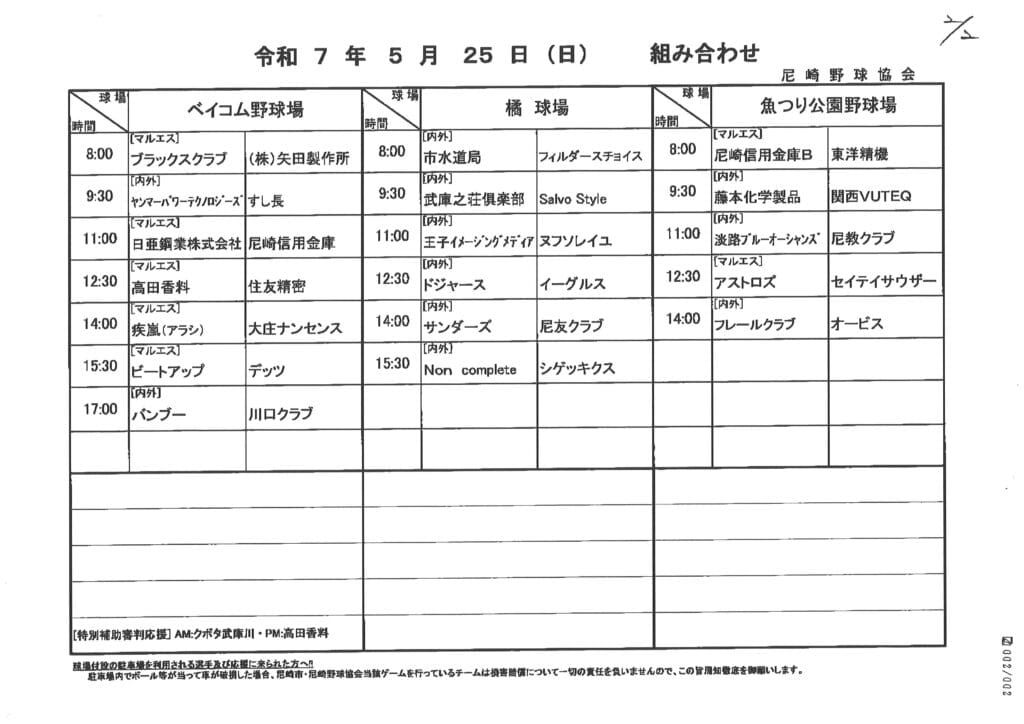 2/2
令和 7 年 5 月 25 日 (日) 組み合わせ
尼崎野球協会
球場 時間 ベイコム野球場 球場 時間 橘 球場 球場 時間 魚つり公園野球場
8:00 [マルエス] ブラックスクラブ (株)矢田製作所 8:00 [内外] 市水道局 フィルダースチョイス 8:00 [マルエス] 尼崎信用金庫B 東洋精機
9:30 [内外] ヤンマーパワーテクノロジーズ すし長 9:30 [内外] 武庫之荘倶楽部 Salvo Style 9:30 [内外] 藤本化学製品 関西VUTEQ
11:00 [マルエス] 日亜鋼業株式会社 尼崎信用金庫 11:00 [内外] 王子イメージングメディア ヌフソレイユ 11:00 [内外] 淡路ブルーオーシャンズ 尼教クラブ
12:30 [マルエス] 高田香料 住友精密 12:30 [内外] ドジャース イーグルス 12:30 [マルエス] アストロズ セイテイサウザー
14:00 [マルエス] 疾嵐(アラシ) 大庄ナンセンス 14:00 [内外] サンダーズ 尼友クラブ 14:00 [内外] フレールクラブ オービス
15:30 [マルエス] ビートアップ デッツ 15:30 [内外] Non complete シゲッキクス
17:00 [内外] バンブー 川口クラブ
[特別補助審判応援] AM:クボタ武庫川・PM:高田香料
球場付設の駐車場を利用される選手及び応援に来られた方へ!!
駐車場内でボール等が当って車が破損した場合、尼崎市・尼崎野球協会当該ゲームを行っているチームは損害賠償について一切の責任を負いませんので、この旨周知徹底を御願いします。
002/002